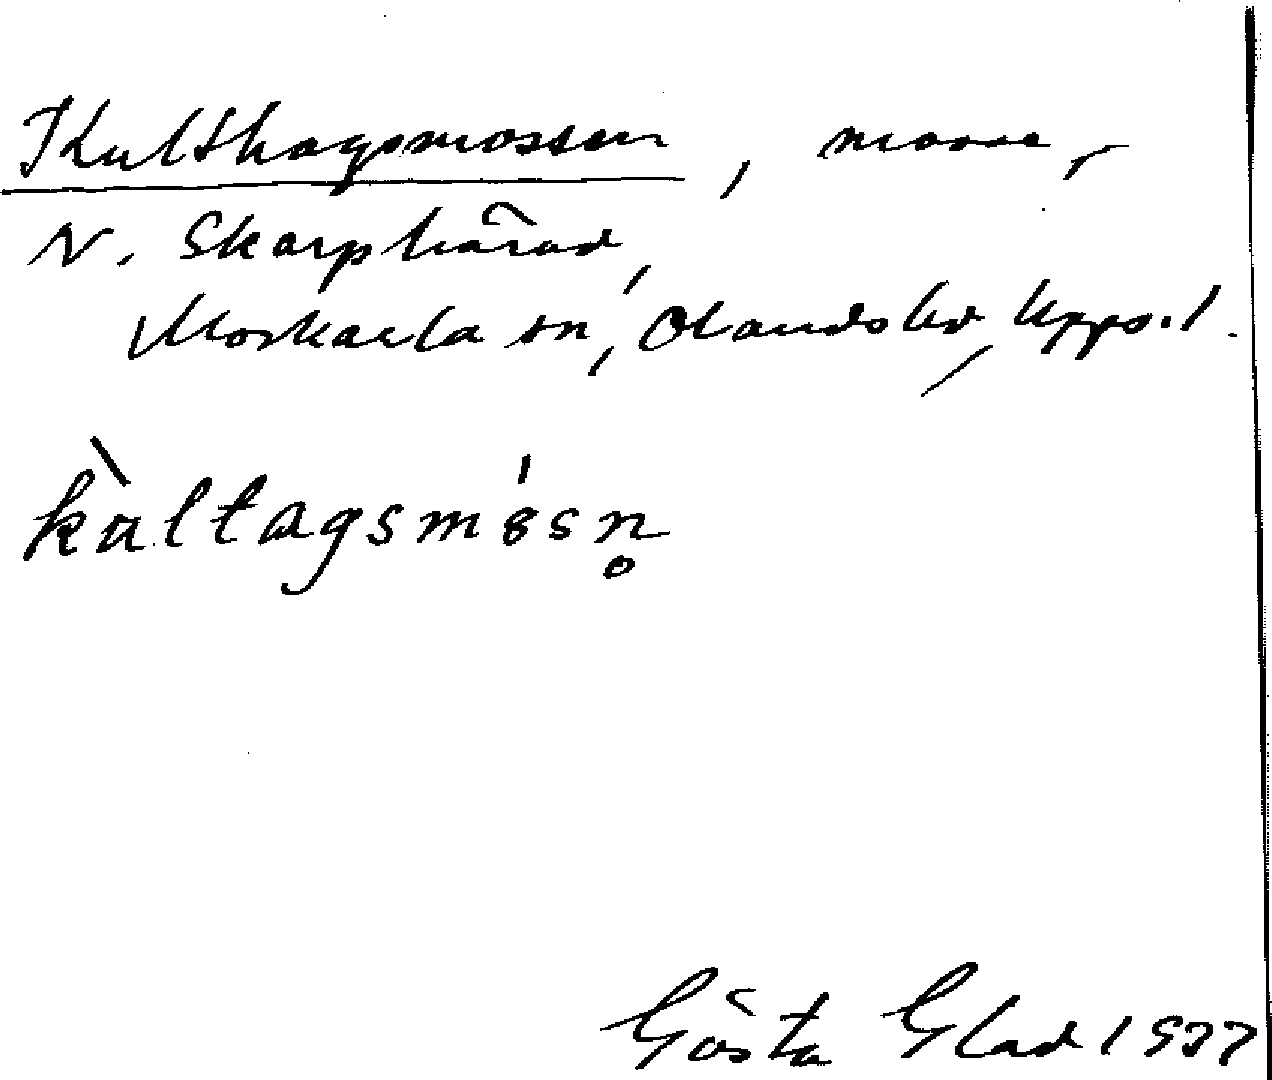 Kulthagsmossen, mosse,
N. Skarphärad,
Morkarla sn, Olands hd, Upps. l.
kultagsmòsn̥
Gösta Glad 1937